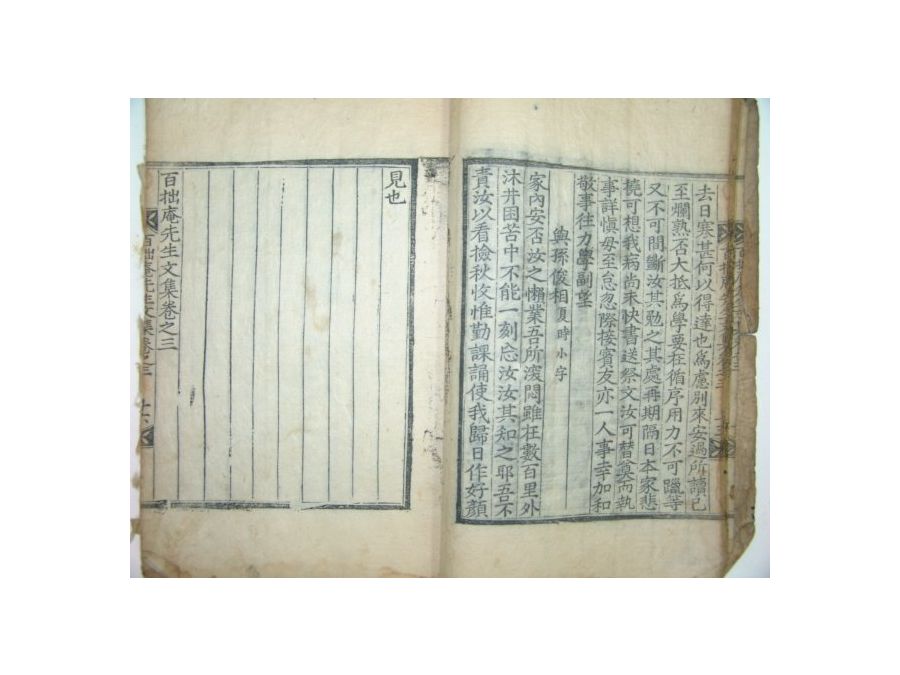 去日寒甚何以得達也爲慮別來安過所讀已
至爛熟否大抵爲學要在循序用力不可躐等
又不可間斷汝其勉之其處再期隔日本家悲
撓可想我病尚未快書送祭文汝可替奠而執
事詳愼毋至怠忽際接賓友亦一人事幸加和
敬事往力學副望
與孫俊相夏時小字
家內安否汝之懶業吾所滾悶雖在數百里外
沐井困苦中不能一刻忘汝汝其知之耶吾不
責汝以看檢秋收惟勤課誦使我歸日作好顔
見也
百拙庵先生文集卷之三
百拙庵先生文集卷之三
十六